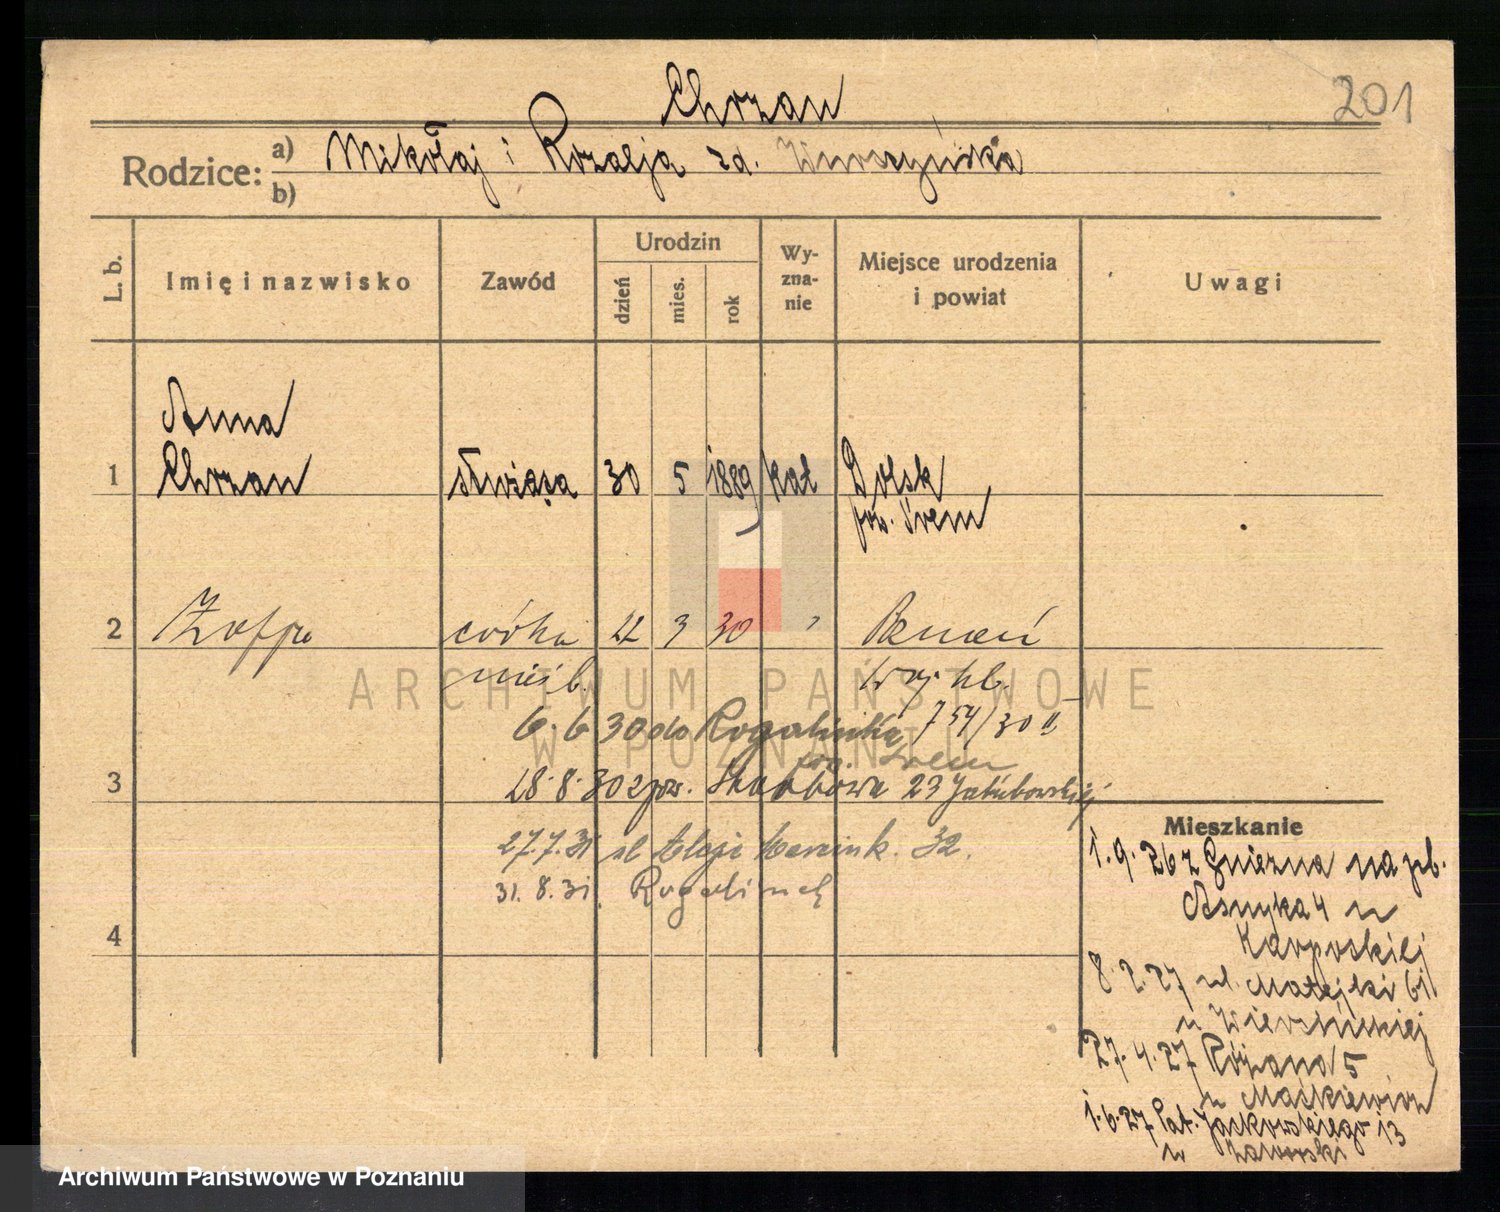 Chrzan
201
Rodzice: a) Mikołaj i Rozalja zd.
b)
L. b.
Imię i nazwisko
Zawód
Urodzin
dzień
mies.
rok
Wy-
zna-
nie
Miejsce urodzenia
i powiat
Uwagi
Anna
1 Chrzan służąca 30 5 1889 kat Dolsk
pow. Śrem
2 Zofja córka 22 3 30 " Poznań
nieśl.
6.6 30 do Rogalinka 754/30 II
pow. Śrem
3 28.8.30 z pow. Skarbowa 23 Jakubowskiej
27.7.31 al Marcink. 32.
31.8.31. Rogalinek
4
Mieszkanie
1.9.26 z Gniezna na pb.
Asnyka 4 u
Karposkiej
8.2.27 ul. Matejki 61
u
27.4.27 Różana 5
u Maćkiewicz
1.6.27 Pat. Jackowskiego 13
u Zaworski
ARCHIWUM PAŃSTWOWE
W POZNANIU
Archiwum Państwowe w Poznaniu